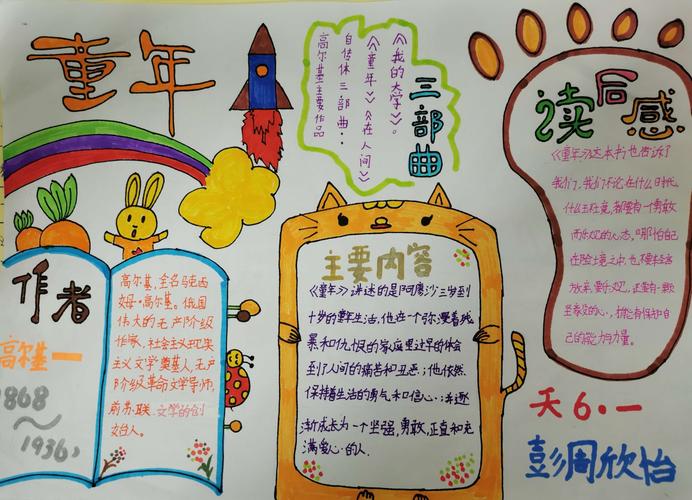 童年
三部曲
《我的大学》。
《童年》《在人间》
自传体三部曲：
高尔基主要作品
读后感
《童年》这本书也告诉了
我们，我们不论在什么时代，
什么环境，都要有一个勇敢
而乐观的心态。哪怕自己
在险境之中，也不要轻言
放弃，要乐观，还要有一颗
至善的心，相信有保护自
己的能力与力量。
作者
高尔基
1868
～
1936
高尔基，全名马克西
姆·高尔基。俄国
伟大的无产阶级
作家，社会主义现实
主义文学奠基人，无产
阶级革命文学导师，
前苏联 文学的创
始人。
主要内容
《童年》讲述的是阿廖沙三岁到
十岁的童年生活，他在一个弥漫着残
暴和仇恨的家庭里过早的体会
到了人间的痛苦和丑恶；他依然
保持着生活的勇气和信心；并逐
渐成长为一个坚强，勇敢，正直和充
满爱心的人。
天6.一
彭周欣怡